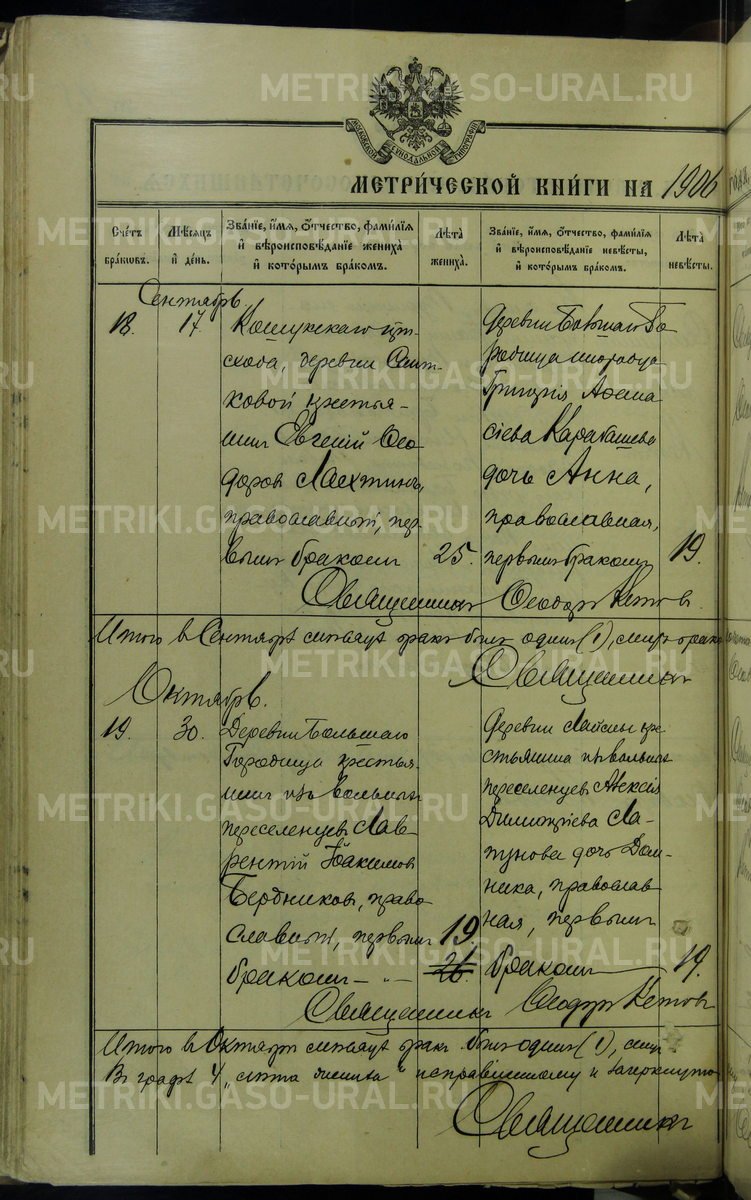 METRIKI.GASO-URAL.RU
МОСКОВСКОЙ СѴНОДАЛЬНОЙ ТИПОГРАФІИ
МЕТРИ́ЧЕСКОЙ КНИ́ГИ НА 1906
Счетъ бра́ковъ.
Мѣсяцъ и́ день.
Зва́нїе, и́мя, о́тчество, фами́лїя и́ вѣроисповѣ́данїе жениха̀ и́ кото́рымъ бра́комъ.
Лѣ́та жениха̀.
Зва́нїе, и́мя, о́тчество, фами́лїя и́ вѣроисповѣ́данїе невѣ́сты, и́ кото́рымъ бра́комъ.
Лѣ́та невѣ́сты.
Сентябрь.
18. 17.
Кошукскаго
схода, деревни
ковой крестья-
нинъ Евгеній Ѳео
доровъ Лаехтинъ,
православный, пер
вымъ бракомъ 25.
Деревни
Григорія Аѳана
сіева Каракашева
дочь Анна,
православная,
первымъ бракомъ 19.
Священникъ Ѳеодоръ Кетовъ.
Итого въ Сентябрѣ мѣсяцѣ бракъ былъ одинъ (1),
Священникъ
Октябрь.
19. 30.
Деревни Большаго
Городища крестья
нинъ изъ вольныхъ
переселенцевъ Лав
рентій Іоакимовъ
Бердниковъ, право
славный, первымъ 19.
бракомъ — 26.
Деревни кре
стьянина изъ вольныхъ
переселенцевъ Алексія
Димитріева Ла-
пунова дочь Дом-
ника, православ
ная, первымъ
бракомъ 19.
Священникъ Ѳеодоръ Кетовъ
Итого въ Октябрѣ мѣсяцѣ бракъ былъ одинъ (1),
Въ графѣ 4 „лѣта жениха" исправленному и зачеркнуто
Священникъ